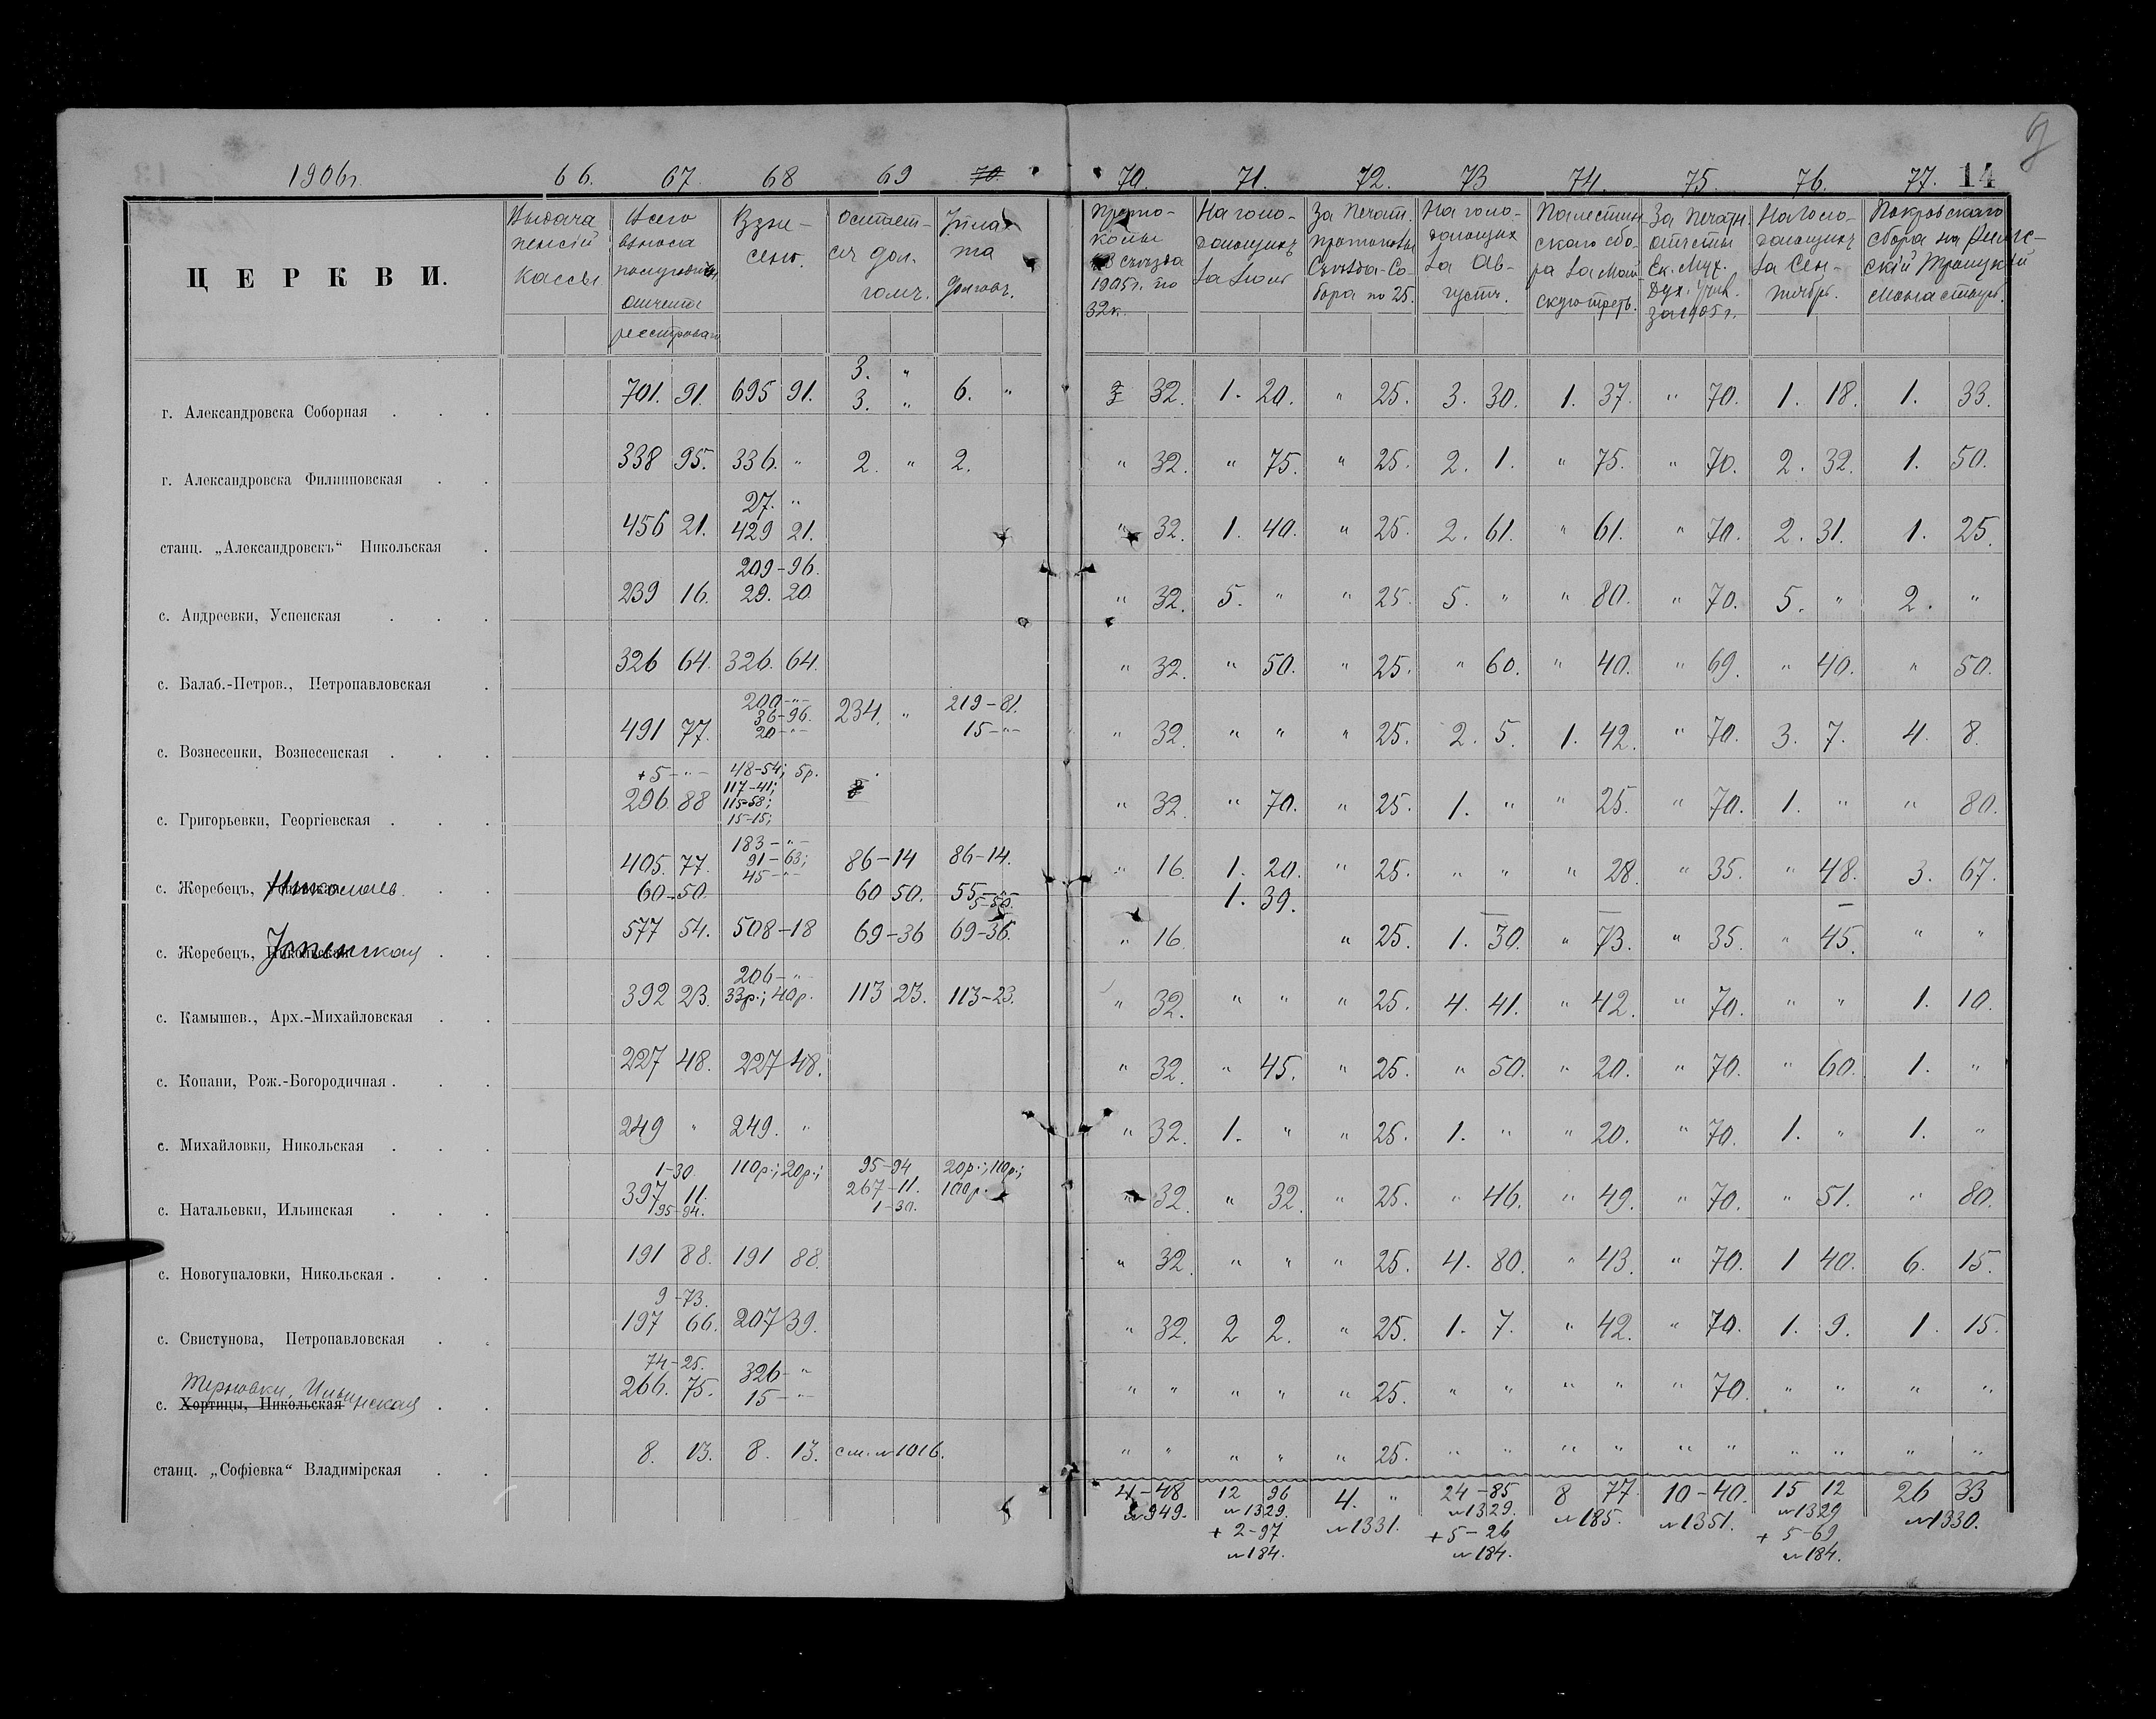 1906г. 66. 67. 68 69 70. 70. 71. 72. 73 74. 75. 76. 77. 14
ЦЕРКВИ.
Выдача пенсій кассы
Всего взноса полугодичн. отчета
Взне- сено.
Остает- ся дол- гомъ.
Уплата долговъ.
Прото- колы съѣзда 1905г. по 32к.
На голо- дающихъ за Іюль
За печат. протоколы Съѣзда-Со- бора по 25.
На голо- дающих за Ав- густъ.
Палестин скаго сбо- ра за Май скую треть.
За печатн. отчеты Ек. Муж. Дух. Учил. за 1905 г.
На голо- дающихъ за Сен- тябрь.
Покровскаго сбора на скій Троицкій Монастырь.
г. Александровска Соборная . . . 701. 91. 695 91. 3. " 3. " 6. " 32. 1. 20. " 25. 3. 30. 1. 37. " 70. 1. 18. 1. 33.
г. Александровска Филипповская . . 338 95. 336. " 2. " 2. " 32. " 75. " 25. 2. 1. " 75. " 70. 2. 32. 1. 50.
станц. „Александровскъ“ Никольская . 456 21. 27. " 429 21. " 32. 1. 40. " 25. 2. 61. " 61. " 70. 2. 31. 1. 25.
с. Андреевки, Успенская . . . 239 16. 209-96. 29. 20. " 32. 5. " " 25. 5. " " 80. " 70. 5. " 2. "
с. Балаб.-Петров., Петропавловская . 326 64. 326. 64. " 32. " 50. " 25. " 60. " 40. " 69. " 40. " 50.
с. Вознесенки, Вознесенская . . . 491 77. 200-"- 36-96. 20-"- 234. " 219-81. 15-"- " 32. " " " 25. 2. 5. 1. 42. " 70. 3. 7. 4. 8.
с. Григорьевки, Георгіевская . . . +5-"- 296. 88 48-54; 5р. 117-41; 115-58; 15-15; " 32. " 70. " 25. 1. " " 25. " 70. 1. " " 80.
с. Жеребецъ, Николаев. . . 405. 77. 60-50. 183-"- 91-63; 45-"- 86-14 60 50. 86-14. 55-"- 5-50. " 16. 1. 20. 1. 39. " 25. " " " 28. " 35. " 48. 3. 67.
с. Жеребецъ, Успенская . . 577 54. 508-18 69-36 69-36. " 16. " 25. 1. 30. " 73. " 35. " 45. " "
с. Камышев., Арх.-Михайловская . . 392 23. 206-"- 33р.; 40р. 113 23. 113-23. " 32. " " " 25. 4. 41. " 42. " 70. " " 1. 10.
с. Копани, Рож.-Богородичная . . . 227 48. 227 48. " 32. " 45. " 25. " 50. " 20. " 70. " 60. 1. "
с. Михайловки, Никольская . . . 249 " 249. " " 32. 1. " " 25. 1. " " 20. " 70. 1. " 1. "
с. Натальевки, Ильинская . . . 1-30. 397 11. 95-94. 110р.; 20р.; 95-94 267-11. 1-30. 20р.; 110р.; 100р. " 32. " 32. " 25. " 46. " 49. " 70. " 51. " 80.
с. Новогупаловки, Никольская . . . 191 88. 191 88. " 32. " " " 25. 4. 80. " 43. " 70. 1 40. 6. 15.
с. Свистунова, Петропавловская . . 9-73. 197 66. 207 39. " 32. 2 2. " 25. 1. 7. " 42. " 70. 1. 9. 1. 15.
Терновки, Ильинская
с. Хортицы, Никольская . . 74-25. 266. 75. 326-" 15-"- " " " " " 25. " " " " " 70. " " " "
станц. „Софіевка“ Владимірская . . 8. 13. 8. 13. см. № 1016. " " " " " 25. " " " " " " " " " "
4-48 12 96 4. " 24-85 8 77. 10-40. 15 12 26 33
№ 949. № 1329. № 1331. № 1329. № 185. № 1351. № 1329 № 1330.
+ 2-97 + 5-26 + 5-69
№ 184. № 184. № 184.